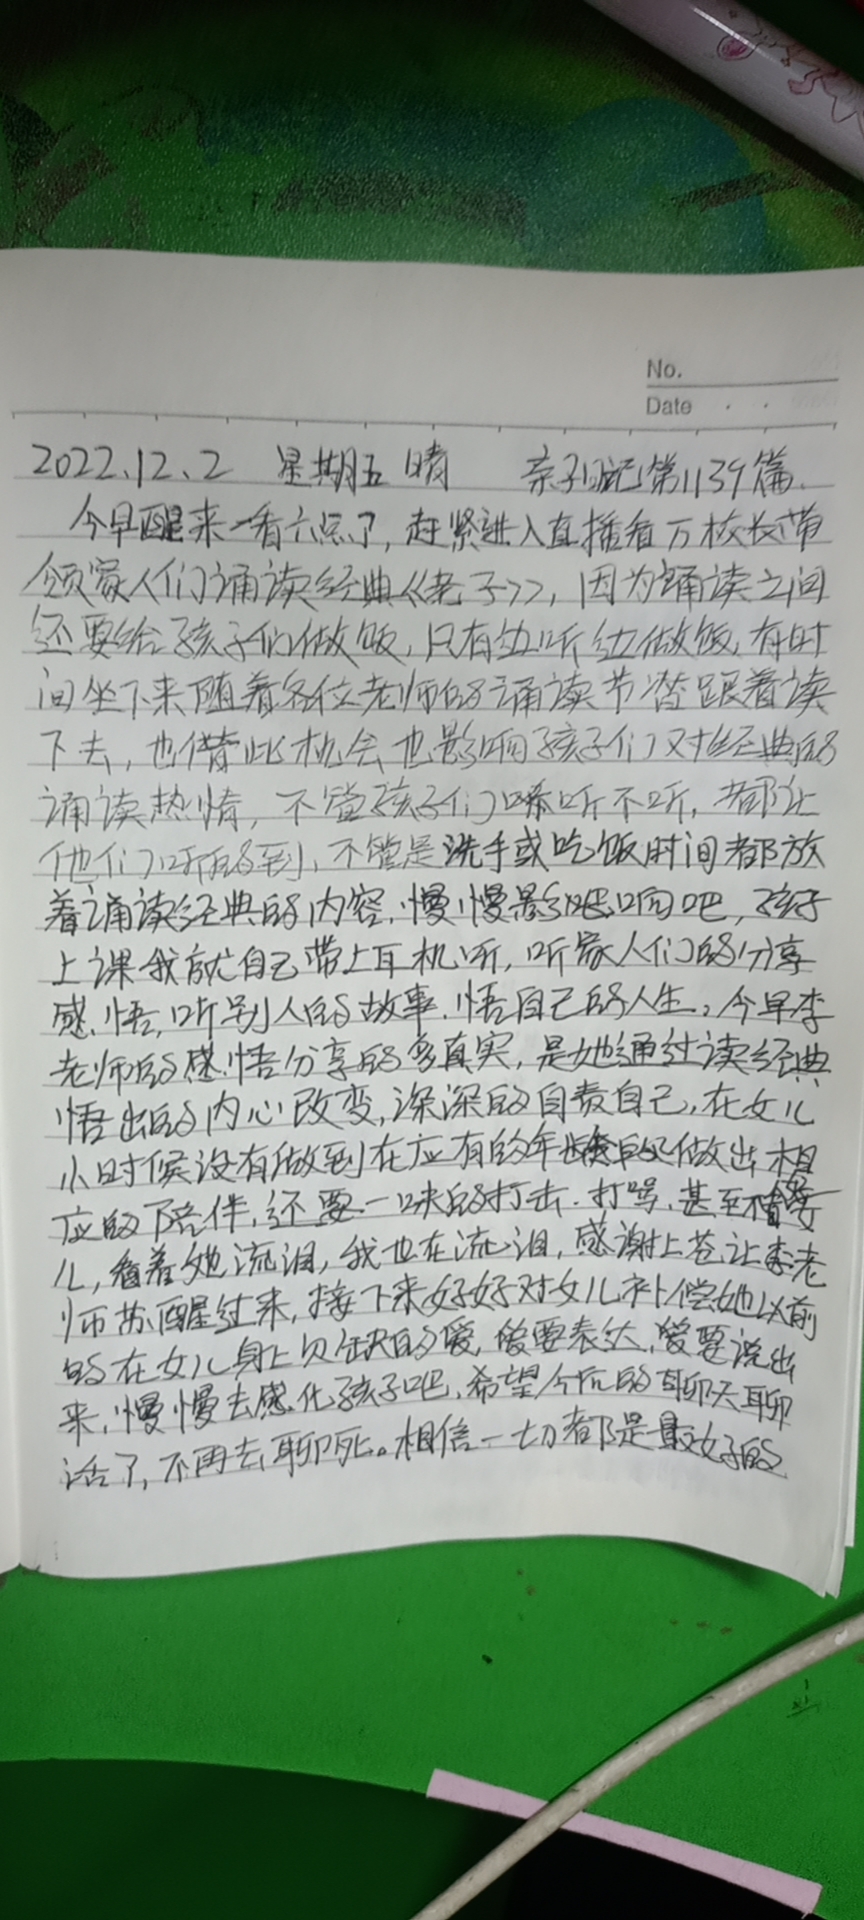 No.
Date
2022.12.2 星期五 晴 亲子日记第1139篇
今早醒来一看六点了,赶紧进入直播看万校长带
领家人们诵读经典《老子》,因为诵读之间
还要给孩子们做饭,只有边听边做饭,有时
间坐下来随着各位老师的诵读节凑跟着读
下去,也借此机会也影响孩子们对经典的
诵读热情,不管孩子们喜听不听,都让
他们听的到,不管是洗手或吃饭时间都放
着诵读经典的内容,慢慢影响吧,孩子
上课我就自己带上耳机听,听家人们的分享
感悟,听别人的故事,悟自己的人生。今早李
老师的感悟分享的多真实,是她通过读经典
悟出的内心改变,深深的自责自己,在女儿
小时候没有做到在应有的年做出相
应的陪伴,还要一味的打击.打骂,甚至不管女
儿,看着她流泪,我也在流泪,感谢上苍让李老
师苏醒过来,接下来好好对女儿补偿她以前
的在女儿身上欠缺的爱,爱要表达,爱要说出
来,慢慢去感化孩子吧,希望今后的聊天聊
活了,不再去聊死。相信一切都是最好的